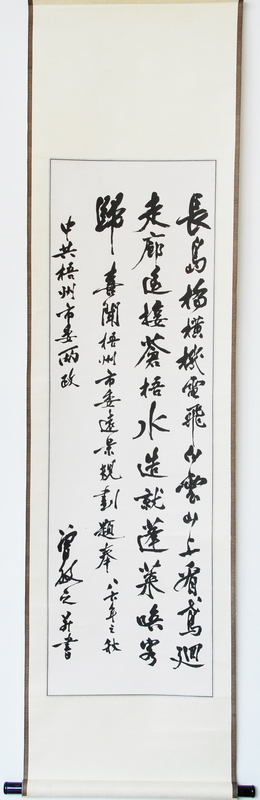 長島橋橫機電飛白雲山上看鳶迴
走廊遠接蒼梧水造就蓬萊喚客
歸 喜聞梧州市委遠景規劃題奉 八六年之秋
中共梧州市委兩政
曾敏之并書